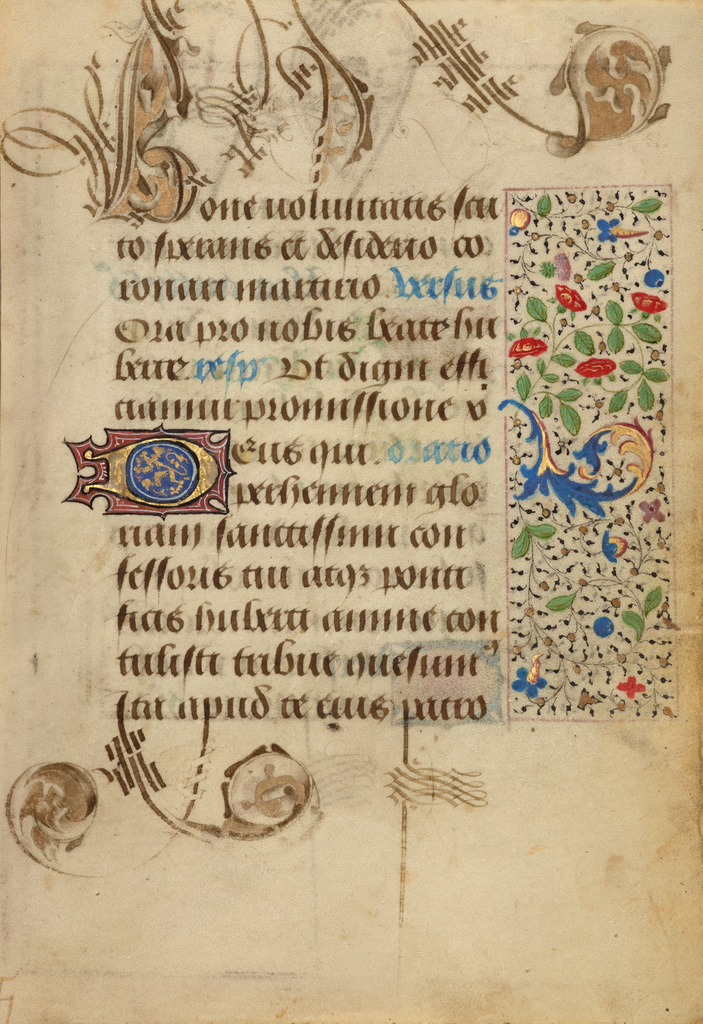 Bone uoluntatis scu
to sperans et desiderio co
ronari martirio Versus
Ora pro nobis beate hu
berte resp Vt digni effi
ciamur promissione
Deus qui. Oratio
perhennem glo
riam sanctissimi con
fessoris tui atqꝫ ponti
ficis huberti anime con
tulisti tribue quesumꝰ
Ita apud te eius patro